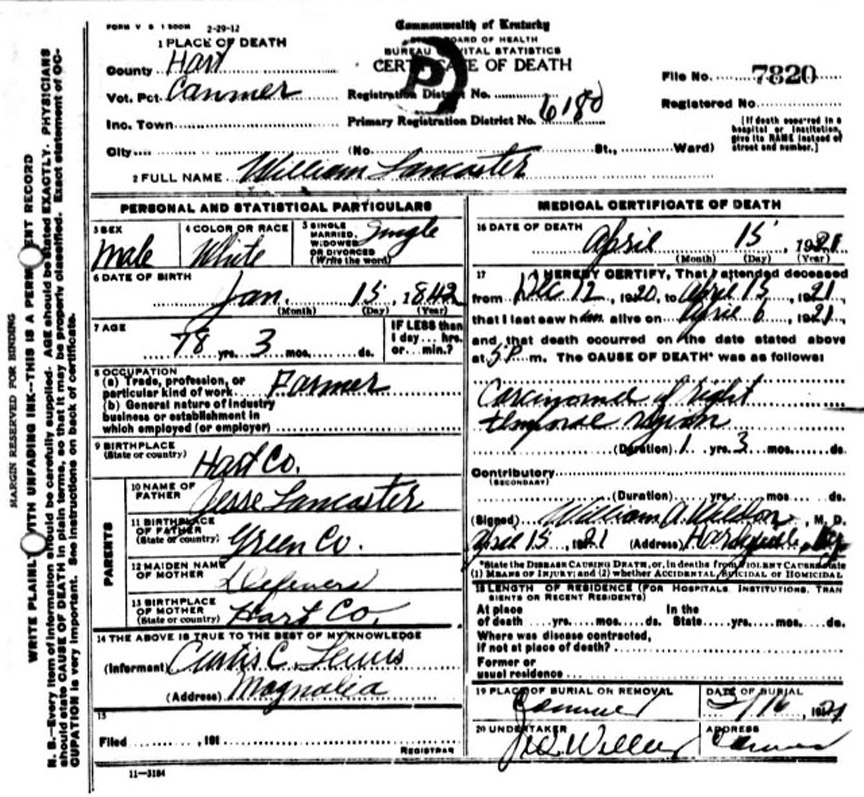 FORM V S 1 500M 2-29-12
Commonwealth of Kentucky
STATE BOARD OF HEALTH
BUREAU OF VITAL STATISTICS
CERTIFICATE OF DEATH
1 PLACE OF DEATH
County Hart
Vot. Pct. Canmer
Inc. Town
City (No. St., Ward)
Registration District No.
Primary Registration District No. 6180
File No. 7820
Registered No.
[If death occurred in a
hospital or institution,
give its NAME instead of
street and number.]
2 FULL NAME William Lancaster
PERSONAL AND STATISTICAL PARTICULARS
3 SEX Male
4 COLOR OR RACE White
5 SINGLE
MARRIED,
WIDOWED
OR DIVORCED
(Write the word)
Single
6 DATE OF BIRTH
Jan. 15, 1842
(Month) (Day) (Year)
7 AGE
78 yrs. 3 mos. ds.
IF LESS than
1 day... hrs.
or... min.?
8 OCCUPATION
(a) Trade, profession, or
particular kind of work Farmer
(b) General nature of industry
business or establishment in
which employed (or employer)
9 BIRTHPLACE
(State or country)
Hart Co.
PARENTS
10 NAME OF
FATHER
Jesse Lancaster
11 BIRTHPLACE
OF FATHER
(State or country) Green Co.
12 MAIDEN NAME
OF MOTHER
Defevers
13 BIRTHPLACE
OF MOTHER
(State or country) Hart Co.
14 THE ABOVE IS TRUE TO THE BEST OF MY KNOWLEDGE
(Informant) Curtis C. Lewis
(Address) Magnolia
15
Filed , 191
REGISTRAR
11-3184
MEDICAL CERTIFICATE OF DEATH
16 DATE OF DEATH
April 15, 1921
(Month) (Day) (Year)
17 I HEREBY CERTIFY, That I attended deceased
from Dec 12, 1920, to April 15, 1921
that I last saw him alive on April 6, 1921
and that death occurred on the date stated above
at 5 P m. The CAUSE OF DEATH* was as follows:
Carcinoma of right
temporal region
(Duration) 1 yrs. 3 mos. ds.
Contributory
(SECONDARY)
(Duration) yrs. mos. ds.
(Signed) William A. , M. D.
April 15, 1921 (Address) Hardyville, Ky
*State the DISEASE CAUSING DEATH, or, in deaths from VIOLENT CAUSES state
(1) MEANS OF INJURY; and (2) whether ACCIDENTAL, SUICIDAL or HOMICIDAL
18 LENGTH OF RESIDENCE (FOR HOSPITALS, INSTITUTIONS, TRAN
SIENTS OR RECENT RESIDENTS)
At place In the
of death yrs. mos. ds. State yrs. mos. ds.
Where was disease contracted,
if not at place of death?
Former or
usual residence
19 PLACE OF BURIAL OR REMOVAL
Canmer
DATE OF BURIAL
/16, 1921
20 UNDERTAKER
ADDRESS
Canmer
MARGIN RESERVED FOR BINDING
WRITE PLAINLY WITH UNFADING INK—THIS IS A PERMANENT RECORD
N. B.—Every item of information should be carefully supplied. AGE should be stated EXACTLY. PHYSICIANS
should state CAUSE OF DEATH in plain terms, so that it may be properly classified. Exact statement of OC-
CUPATION is very important. See instructions on back of certificate.